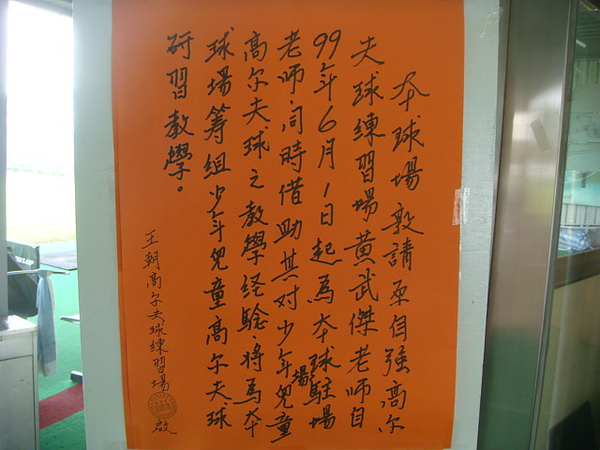 本球場敦請原自強高尔
夫球練習場黃武傑老师自
99年6月1日起為本球場駐場
老师,同時借助其对少年兒童
高尔夫球之教學经驗,將為本
球場筹組少年兒童高尔夫球
研習教學。
王朝高尔夫球練習場 啟